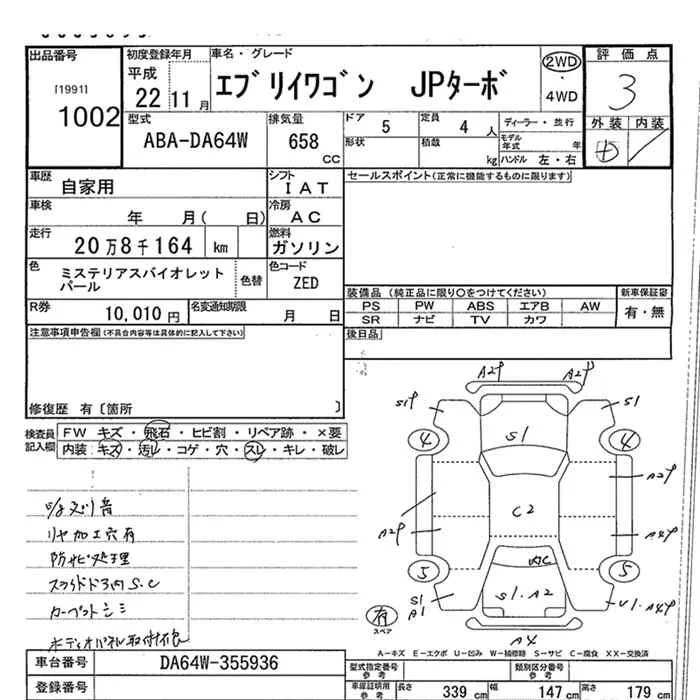 出品番号
[1991]
1002
初度登録年月
平成
22 11月
車名・グレード
エブリイワゴン JPターボ
2WD
4WD
評価点
3
外装 内装
型式
ABA-DA64W
排気量
658
CC
ドア
5
定員
4人
ディーラー・並行
形状
積載
kg
モデル年式 年
ハンドル 左・右
車歴
自家用
シフト
IAT
セールスポイント(正常に機能するものに限ります)
車検
年 月( 日)
冷房
AC
走行
20万8千164 km
燃料
ガソリン
色
ミステリアスバイオレット
パール
色替
色コード
ZED
R券
10,010円
名変通知期限
月 日
装備品 (純正品に限り○をつけてください)
PS PW ABS エアB AW
SR ナビ TV カワ
新車保証書
有・無
注意事項申告欄(不具合内容等は具体的に記入して下さい)
後日品
修復歴 有〔箇所 〕
検査員
記入欄
FW キズ・飛石・ヒビ割・リペア跡・×要
内装・キズ・汚レ・コゲ・穴・スレ・キレ・破レ
リヤ加工穴有
防サビ処理
カーペットシミ
A2P A2P
S1P S1
4 S1 4
A2P
C2
A2P A4P
5 5
S1・A2
S1
A1
U1・A4P
有
スペア
A4
A-キズ E-エクボ U-凹み W-補修跡 S-サビ C-腐食 XX-交換済
車台番号
DA64W-355936
型式指定番号
参考
類別区分番号
参考
登録番号
車庫証明用
参考
長さ
339 cm
幅
147 cm
高さ
179 cm